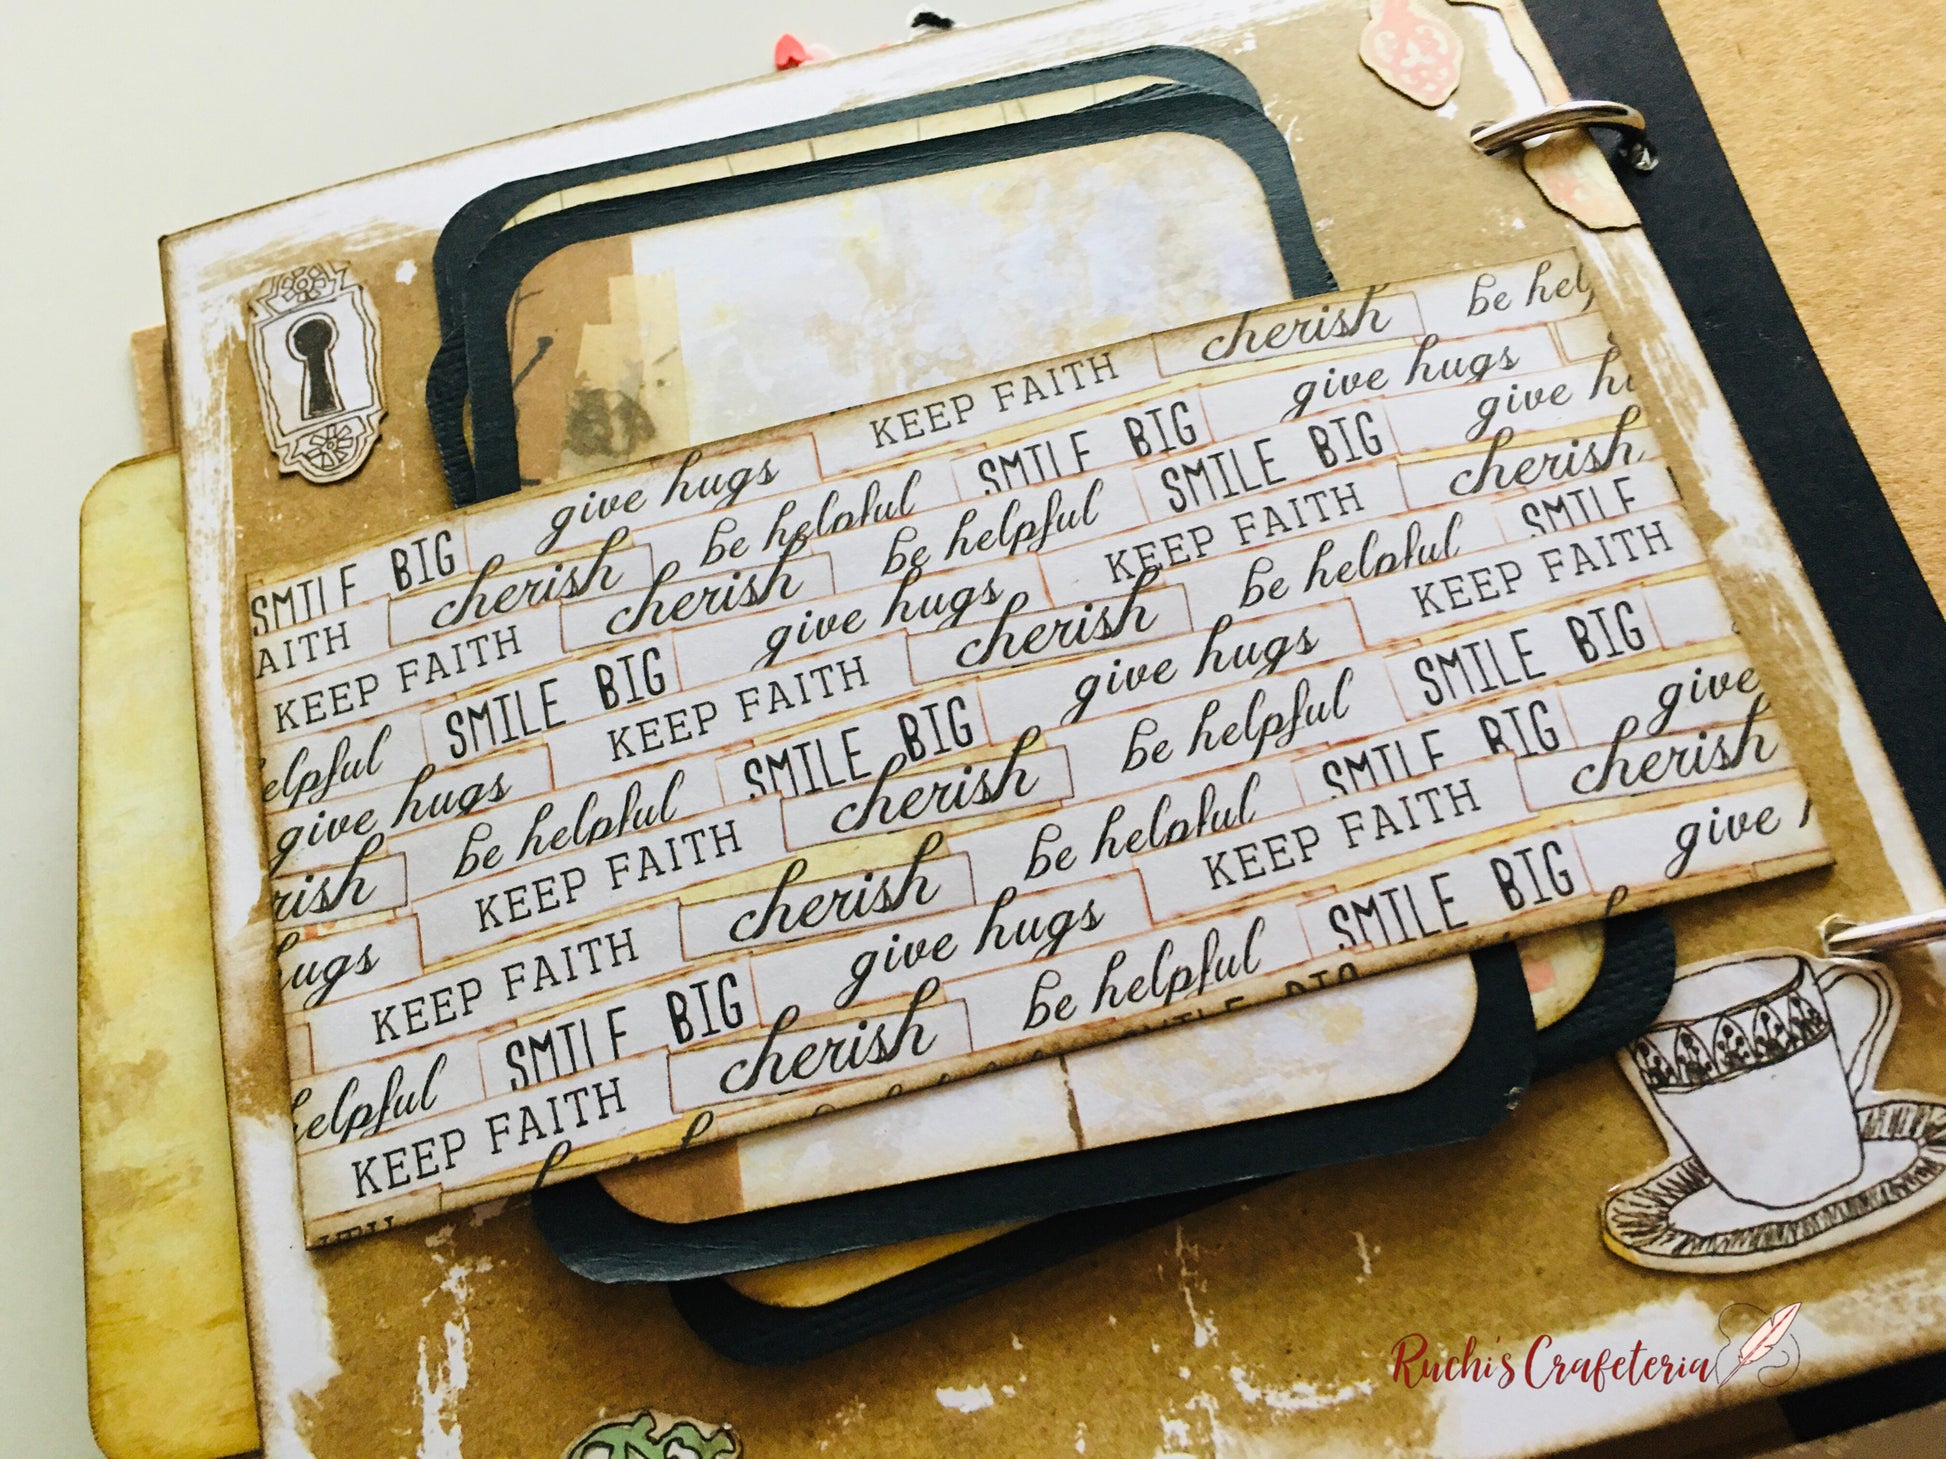 SMILE BIG give hugs KEEP FAITH cherish be hel
AITH cherish be helpful SMILE BIG give hugs
KEEP FAITH cherish be helpful SMILE BIG give h
elpful SMILE BIG give hugs KEEP FAITH cherish
give hugs KEEP FAITH cherish be helpful SMILE
rish be helpful SMILE BIG give hugs KEEP FAITH
ugs KEEP FAITH cherish be helpful SMILE BIG
KEEP FAITH cherish be helpful SMILE BIG give
elpful SMILE BIG give hugs KEEP FAITH cherish
KEEP FAITH cherish be helpful SMILE BIG give
Ruchi's Crafeteria